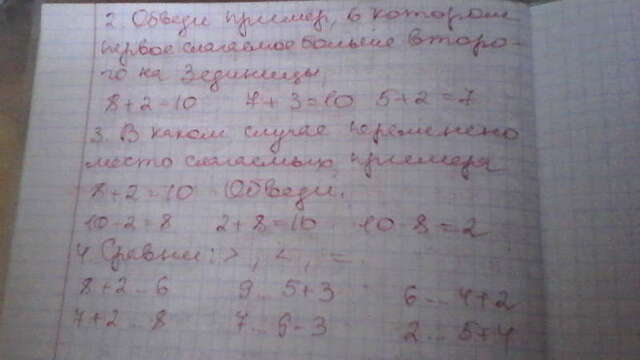 2. Обведи пример, в котором
первое слагаемое больше второ-
го на 3 единицы.
8+2=10 7+3=10 5+2=7
3. В каком случае переменено
место слагаемых примера
8+2=10 Обведи.
10-2=8 2+8=10 10-8=2
4. Сравни: >, <, =.
8+2...6 9...5+3 6...4+2
7+2...8 7...6-3 2...5+4